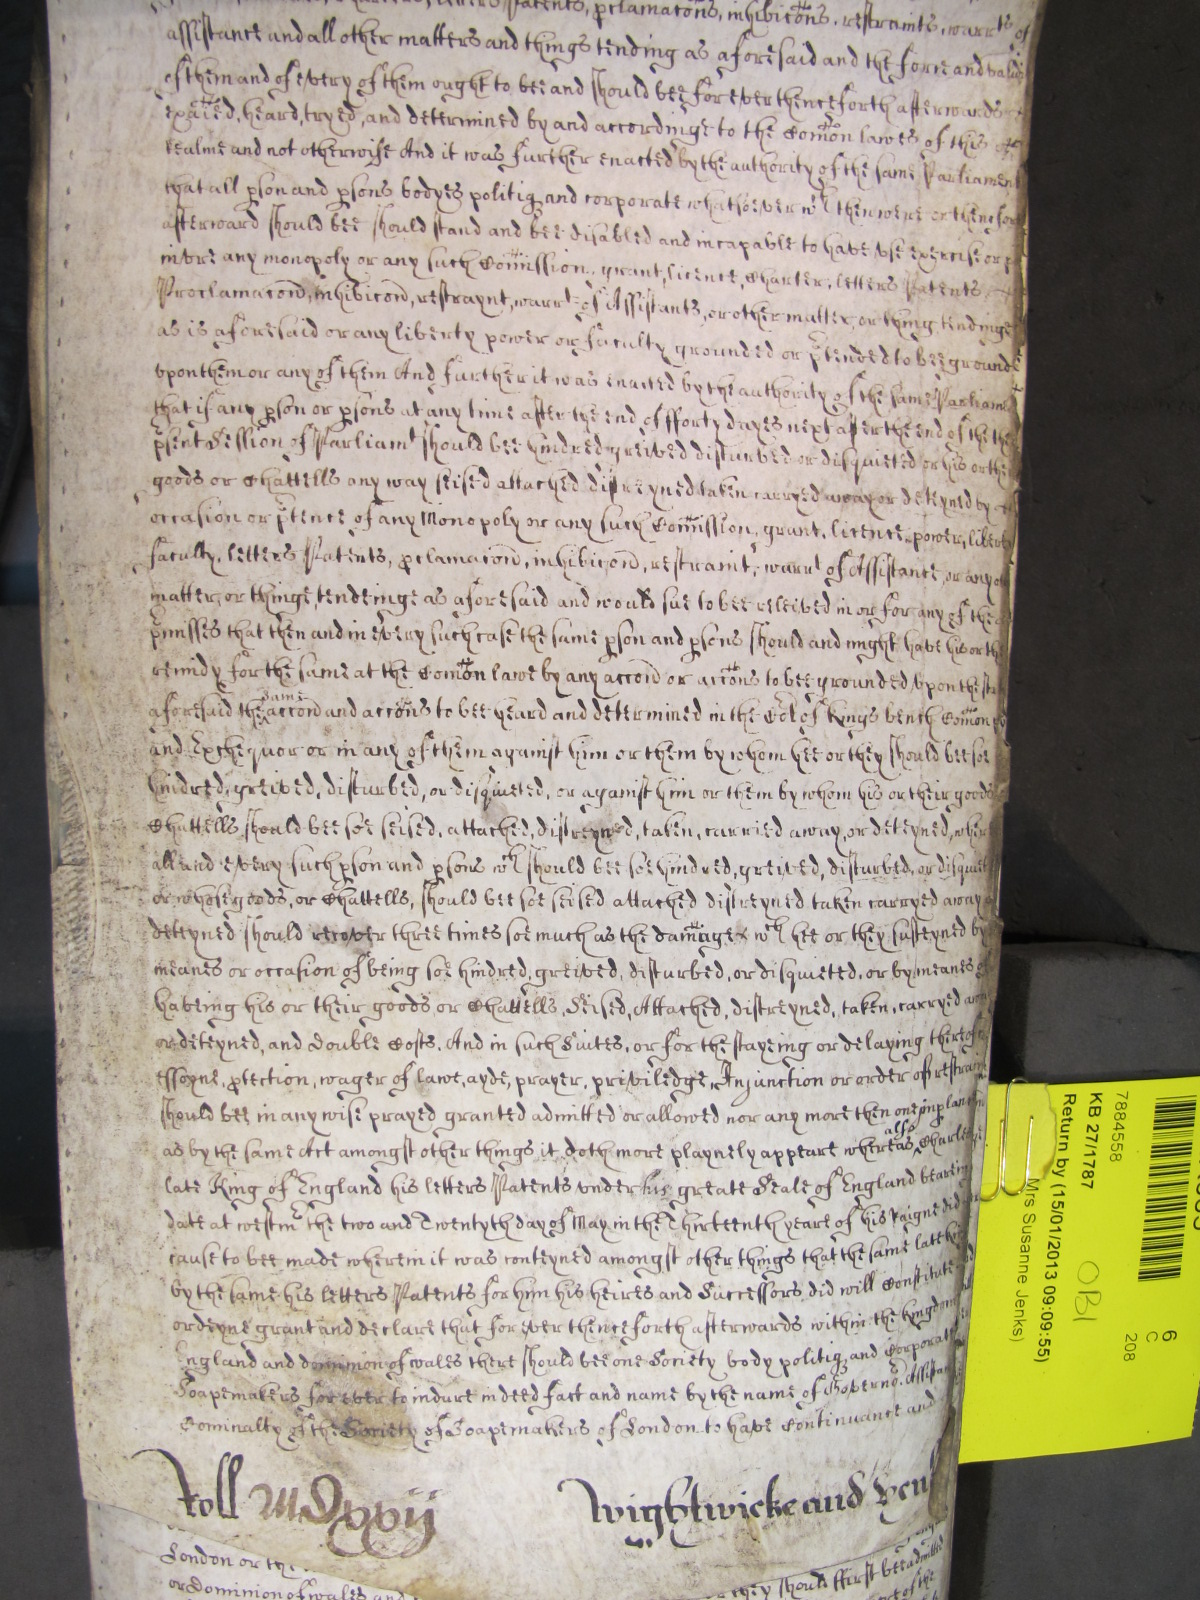 letters Patents, pclamacons, inhibicons, restraints, warrts of
assistance and all other matters and things tending as aforesaid and the force and validi
of them and of every of them ought to bee and should bee for ever thenceforth afterwards
exaied, heard, tryed, and determined by and accordinge to the Comon lawes of this
realme and not otherwise And it was further enacted by the authority of the same Parliament
that all pson and psons bodyes politiq and corporate whatsoever wch then were or thencefor
afterward should bee should stand and bee disabled and incapable to have use exercise or p
in ure any monopoly or any such Comission, grant, licence, Charter, letters Patents
Proclamacon, inhibicon, restraynt, warrt of Assistants, or other matter, or thing tendinge
as is aforesaid or any liberty power or faculty grounded or ptended to bee grounde
upon them or any of them And further it was enacted by the authority of the same Parliam
that if any pson or psons at any time after the end of fforty dayes next after the end of the the
psent Session of Parliamt should bee hindred greived disturbed or disquieted or his or the
goods or Chattells any way seised attached distreyned taken carryed away or deteyned by
occasion or ptence of any Monopoly or any such Comission, grant, licence, power, libert
faculty, letters Patents, pclamacon, inhibicon, restraint, warrt of Assistance, or any o
matter, or thinge tendeinge as aforesaid and would sue to bee releived in or for any of the
pmisses that then and in every such case the same pson and psons should and might have his or th
remidy for the same at the Comon lawe by any accon or accons to bee grounded upon the sta
aforesaid the same accon and accons to bee heard and determined in the Cot of Kings bench Comon p
and Exchequor or in any of them against him or them by whom hee or they should bee soe
hindred, greived, disturbed, or disquieted, or against him or them by whom his or their goods
Chattells should bee soe seised, attached, distreyned, taken, carried away, or deteyned, wher
all and every such pson and psons wch should bee soe hindred, greived, disturbed, or disquiet
or whose goods, or Chattells, should bee soe seised attached distreyned taken carryed away
deteyned should recover three times soe much as the damages wch hee or they susteyned by
meanes or occasion of being soe hindred, greived, disturbed, or disquieted, or by meanes of
haveing his or their goods or Chattells, Seised, Attached, distreyned, taken, carryed away
or deteyned, and double Costs, And in such Suites, or for the stayeing or delaying thereof
essoyne, ptection, wager of lawe, ayde, prayer, priviledge, Injunction or order of restrain
should bee in any wise prayed granted admitted or allowed nor any more then one imparlan
as by the same Act amongst other things it doth more playnely appeare whereas also Charles
late King of England his letters Patents under his greate Seale of England bearein
date at westmr the two and Twentyth day of May in the Thirteenth yeare of his Raigne did
cause to bee made wherein it was conteyned amongst other things that the same late Kin
by the same his letters Patents for him his heires and Successors did will Constitute
ordeyne grant and declare that for ever thenceforth afterwards within the Kingdom
England and dominion of wales there should bee one Society body politiq and Corporat
Soapemakers for ever to indure indeed fact and name by the name of Governor Assistan
Cominalty of the Society of Soapemakers of London to have Continuance and
Roll MDxxvij Wightwicke and Hen
London or the
or Dominion of wales and they should ffirst bee admitted
of the
7884558
KB 27/1787
Return by (15/01/2013 09:09:55)
Mrs Susanne Jenks)
6
C
208